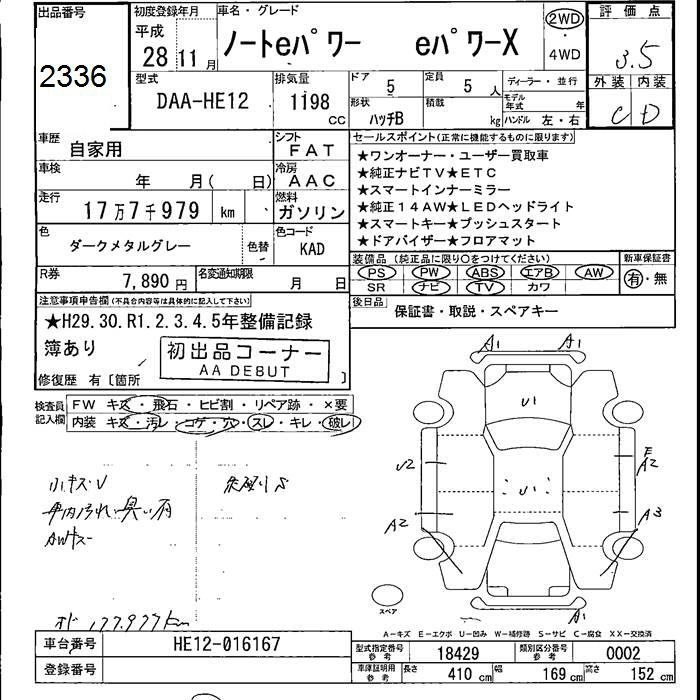 出品番号
2336
初度登録年月
平成
28 11 月
車名・グレード
ノートeパワー eパワーX
2WD
・
4WD
評価点
3.5
外装 内装
C D
型式
DAA-HE12
排気量
1198 CC
ドア
5
定員
5 人
ディーラー・並行
形状
ハッチB
積載
kg
モデル年式 年
ハンドル 左・右
車歴
自家用
シフト
FAT
車検
年 月( 日)
冷房
AAC
走行
17万7千979 km
燃料
ガソリン
色
ダークメタルグレー
色替
色コード
KAD
R券
7,890 円
名変通知期限
月 日
セールスポイント(正常に機能するものに限ります)
★ワンオーナー・ユーザー買取車
★純正ナビTV★ETC
★スマートインナーミラー
★純正14AW★LEDヘッドライト
★スマートキー★プッシュスタート
★ドアバイザー★フロアマット
装備品 (純正品に限り○をつけてください)
PS PW ABS エアB AW
SR ナビ TV カワ
新車保証書
有・無
後日品
保証書・取説・スペアキー
注意事項申告欄(不具合内容等は具体的に記入して下さい)
★H29.30.R1.2.3.4.5年整備記録
簿あり
初出品コーナー
AA DEBUT
修復歴 有〔箇所 〕
検査員記入欄
FW キズ・飛石・ヒビ割・リペア跡・×要
内装 キズ・汚レ・コゲ・穴・スレ・キレ・破レ
小キズU
車内汚れ・臭い有
AWキズ
177,977km
A1 A1
U2
A2
E
A2
A3
A1
スペア
A-キズ E-エクボ U-凹み W-補修跡 S-サビ C-腐食 XX-交換済
車台番号
HE12-016167
登録番号
型式指定番号 参考
18429
類別区分番号 参考
0002
車庫証明用 参考
長さ 410 cm 幅 169 cm 高さ 152 cm